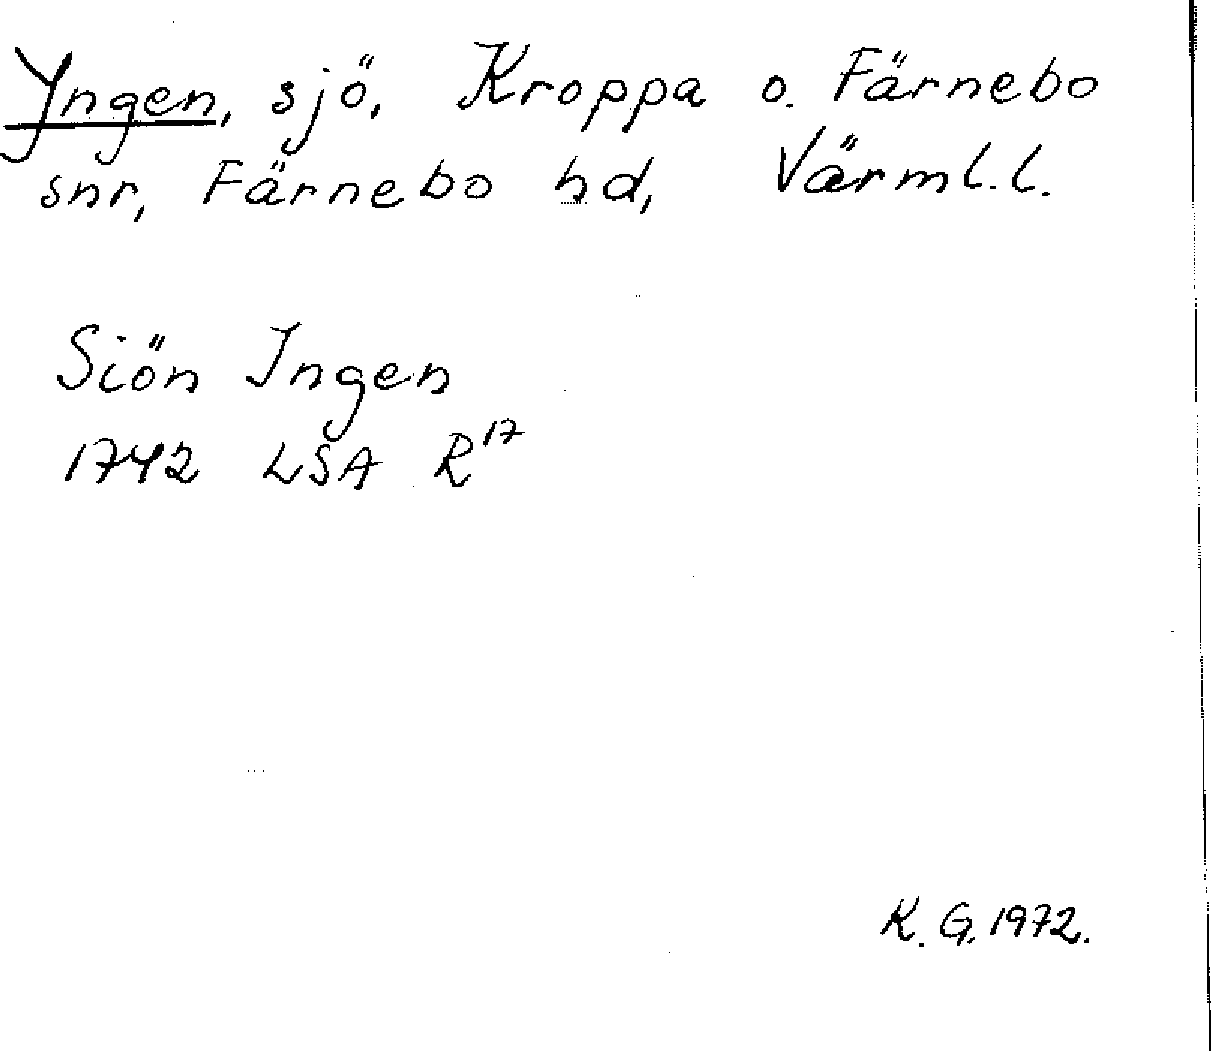 Yngen, sjö, Kroppa o. Färnebo
snr, Färnebo hd, Värml.l.
Siön Ingen
1742 LSA R17
K.G.1972.